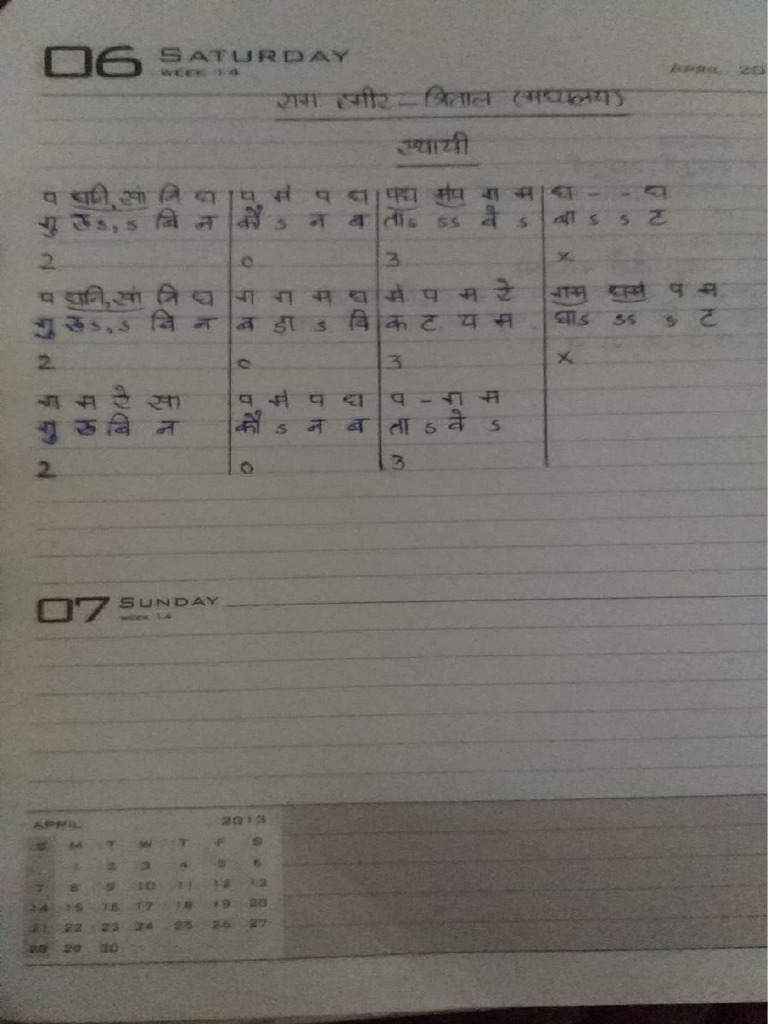 06 SATURDAY
WEEK 14
APRIL
राग हमीर - त्रिताल (मध्यलय)
स्थायी
प धनि,सां नि ध | प मं प ध | पध मंप ग म | ध - - ध
गु रुऽ,ऽ बि न | कौ ऽ न ब | ताऽ ऽऽ वे ऽ | बा ऽ ऽ ट
2 0 3 x
प धनि,सां नि ध | ग ग म ध | मं प म रे | गम धमं प म
गु रुऽ,ऽ बि न | ब ड़ा ऽ वि | क ट य म | घाऽ ऽऽ ऽ ट
2 0 3 x
ग म रे सा | प मं प ध | प - ग म
गु रु बि न | कौ ऽ न ब | ता ऽ वे ऽ
2 0 3
07 SUNDAY
WEEK 14
APRIL 2013
S M T W T F S
1 2 3 4 5 6
7 8 9 10 11 12 13
14 15 16 17 18 19 20
21 22 23 24 25 26 27
28 29 30